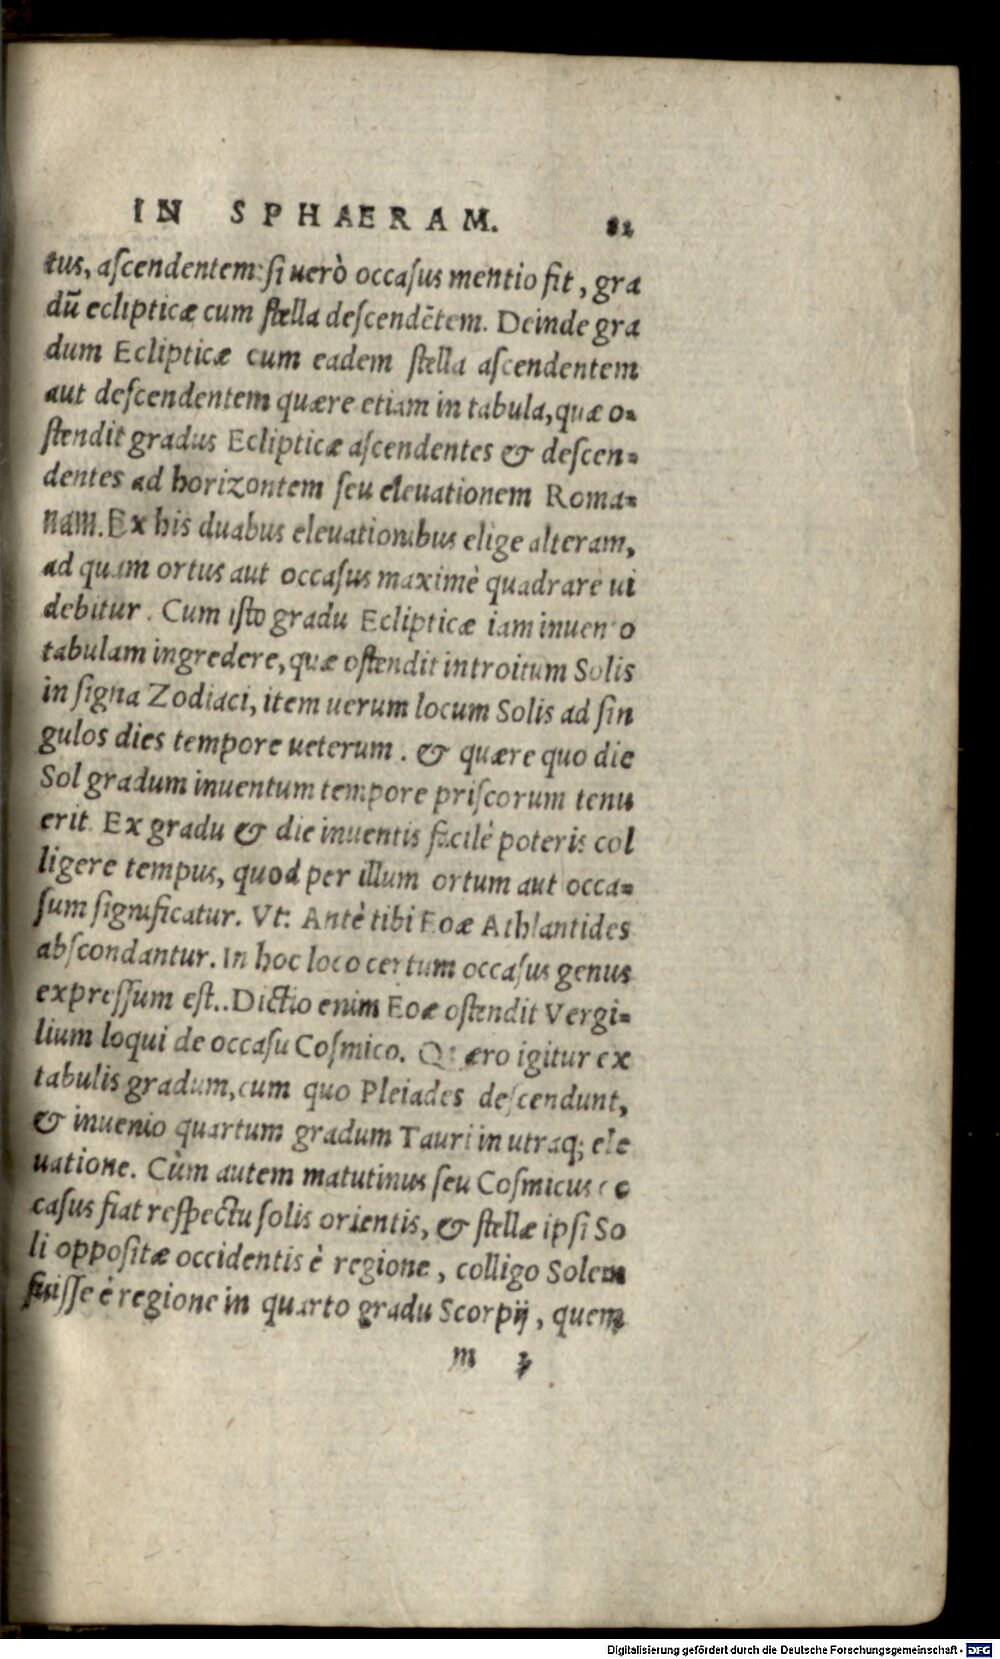 IN SPHAERAM. 82
tus, ascendentem: si uerò occasus mentio fit, gra
dū eclipticæ cum stella descendētem. Deinde gra
dum Eclipticæ cum eadem stella ascendentem
aut descendentem quære etiam in tabula, quæ o-
stendit gradus Eclipticæ ascendentes & descen-
dentes ad horizontem seu eleuationem Roma-
nam. Ex his duabus eleuationibus elige alteram,
ad quam ortus aut occasus maximè quadrare ui
debitur. Cum isto gradu Eclipticæ iam inuento
tabulam ingredere, quæ ostendit introitum Solis
in signa Zodiaci, item uerum locum Solis ad sin
gulos dies tempore ueterum. & quære quo die
Sol gradum inuentum tempore priscorum tenu
erit. Ex gradu & die inuentis facilè poteris col
ligere tempus, quod per illum ortum aut occa-
sum significatur. Vt: Antè tibi Eoæ Athlantides
abscondantur. In hoc loco certum occasus genus
expressum est.. Dictio enim Eoæ ostendit Vergi-
lium loqui de occasu Cosmico. Quæro igitur ex
tabulis gradum, cum quo Pleiades descendunt,
& inuenio quartum gradum Tauri in utraq; ele
uatione. Cùm autem matutinus seu Cosmicus oc
casus fiat respectu solis orientis, & stellæ ipsi So
li oppositæ occidentis è regione, colligo Solem
fuisse è regione in quarto gradu Scorpij, quem
m
Digitalisierung gefördert durch die Deutsche Forschungsgemeinschaft - DFG